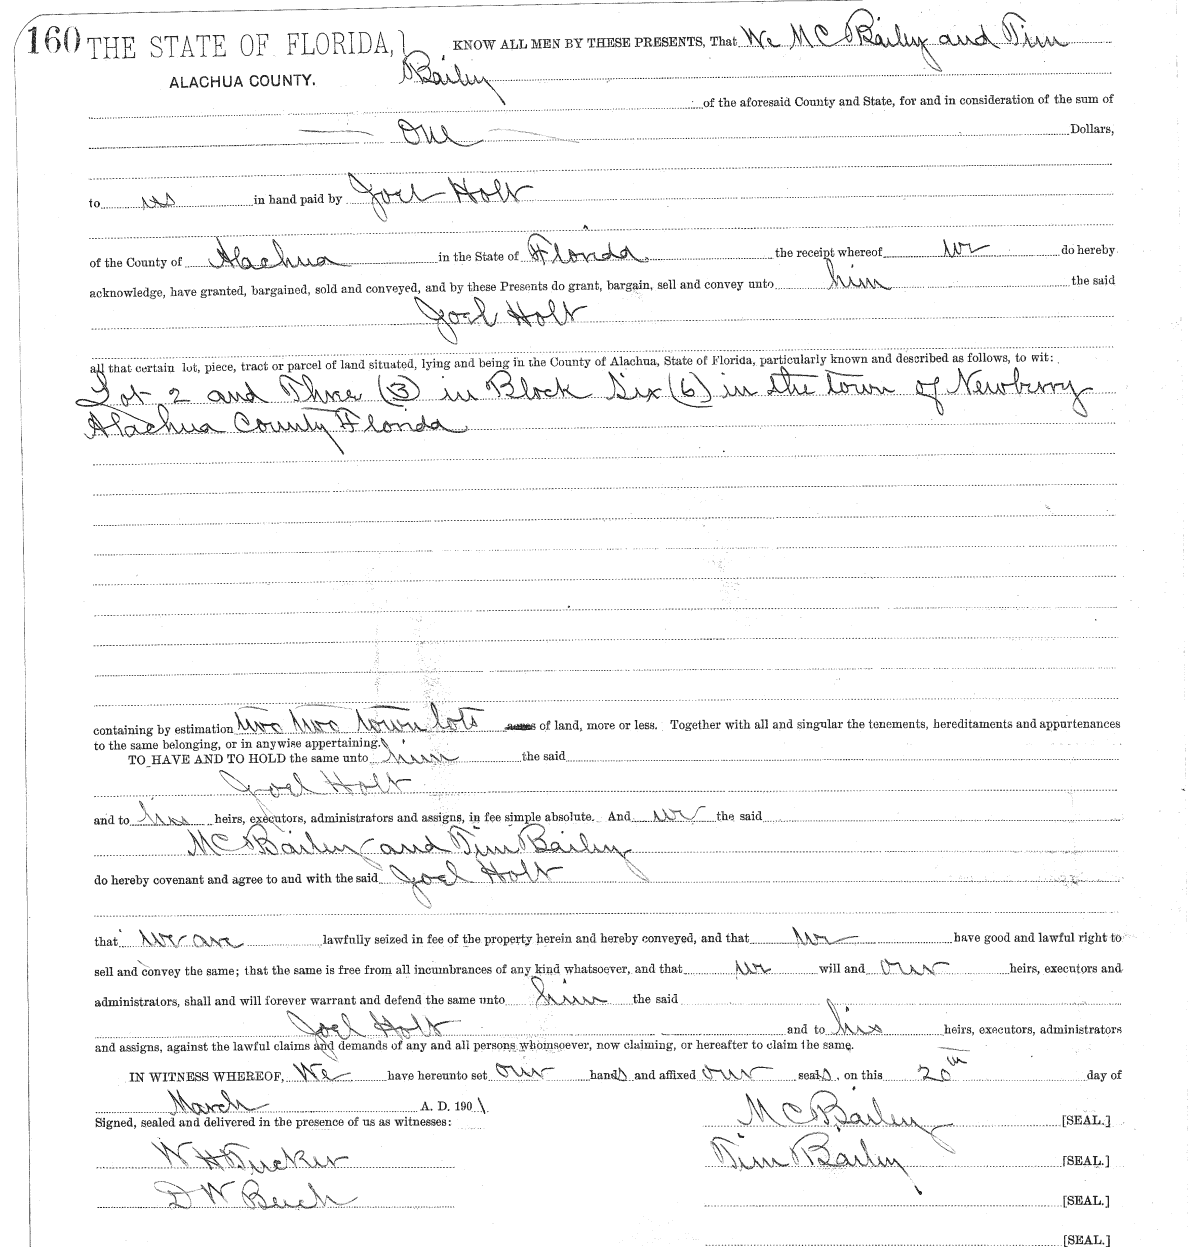 160 THE STATE OF FLORIDA, } KNOW ALL MEN BY THESE PRESENTS, That We M C Bailey and Tim
ALACHUA COUNTY. Bailey
of the aforesaid County and State, for and in consideration of the sum of
One Dollars,
to us in hand paid by Joel Holt
of the County of Alachua in the State of Florida the receipt whereof we do hereby
acknowledge, have granted, bargained, sold and conveyed, and by these Presents do grant, bargain, sell and convey unto him the said
Joel Holt
all that certain lot, piece, tract or parcel of land situated, lying and being in the County of Alachua, State of Florida, particularly known and described as follows, to wit:
Lot 2 and Three (3) in Block Six (6) in the town of Newberry
Alachua County Florida
containing by estimation two two town lots acres of land, more or less. Together with all and singular the tenements, hereditaments and appurtenances
to the same belonging, or in anywise appertaining.
TO HAVE AND TO HOLD the same unto him the said
Joel Holt
and to his heirs, executors, administrators and assigns, in fee simple absolute. And we the said
M C Bailey and Tim Bailey
do hereby covenant and agree to and with the said Joel Holt
that we are lawfully seized in fee of the property herein and hereby conveyed, and that we have good and lawful right to
sell and convey the same; that the same is free from all incumbrances of any kind whatsoever, and that we will and our heirs, executors and
administrators, shall and will forever warrant and defend the same unto him the said
Joel Holt and to his heirs, executors, administrators
and assigns, against the lawful claims and demands of any and all persons whomsoever, now claiming, or hereafter to claim the same.
IN WITNESS WHEREOF, We have hereunto set our hands and affixed our seals, on this 20th day of
March A. D. 1901.
Signed, sealed and delivered in the presence of us as witnesses: M C Bailey [SEAL.]
W H Tucker Tim Bailey [SEAL.]
D W Beach [SEAL.]
[SEAL.]